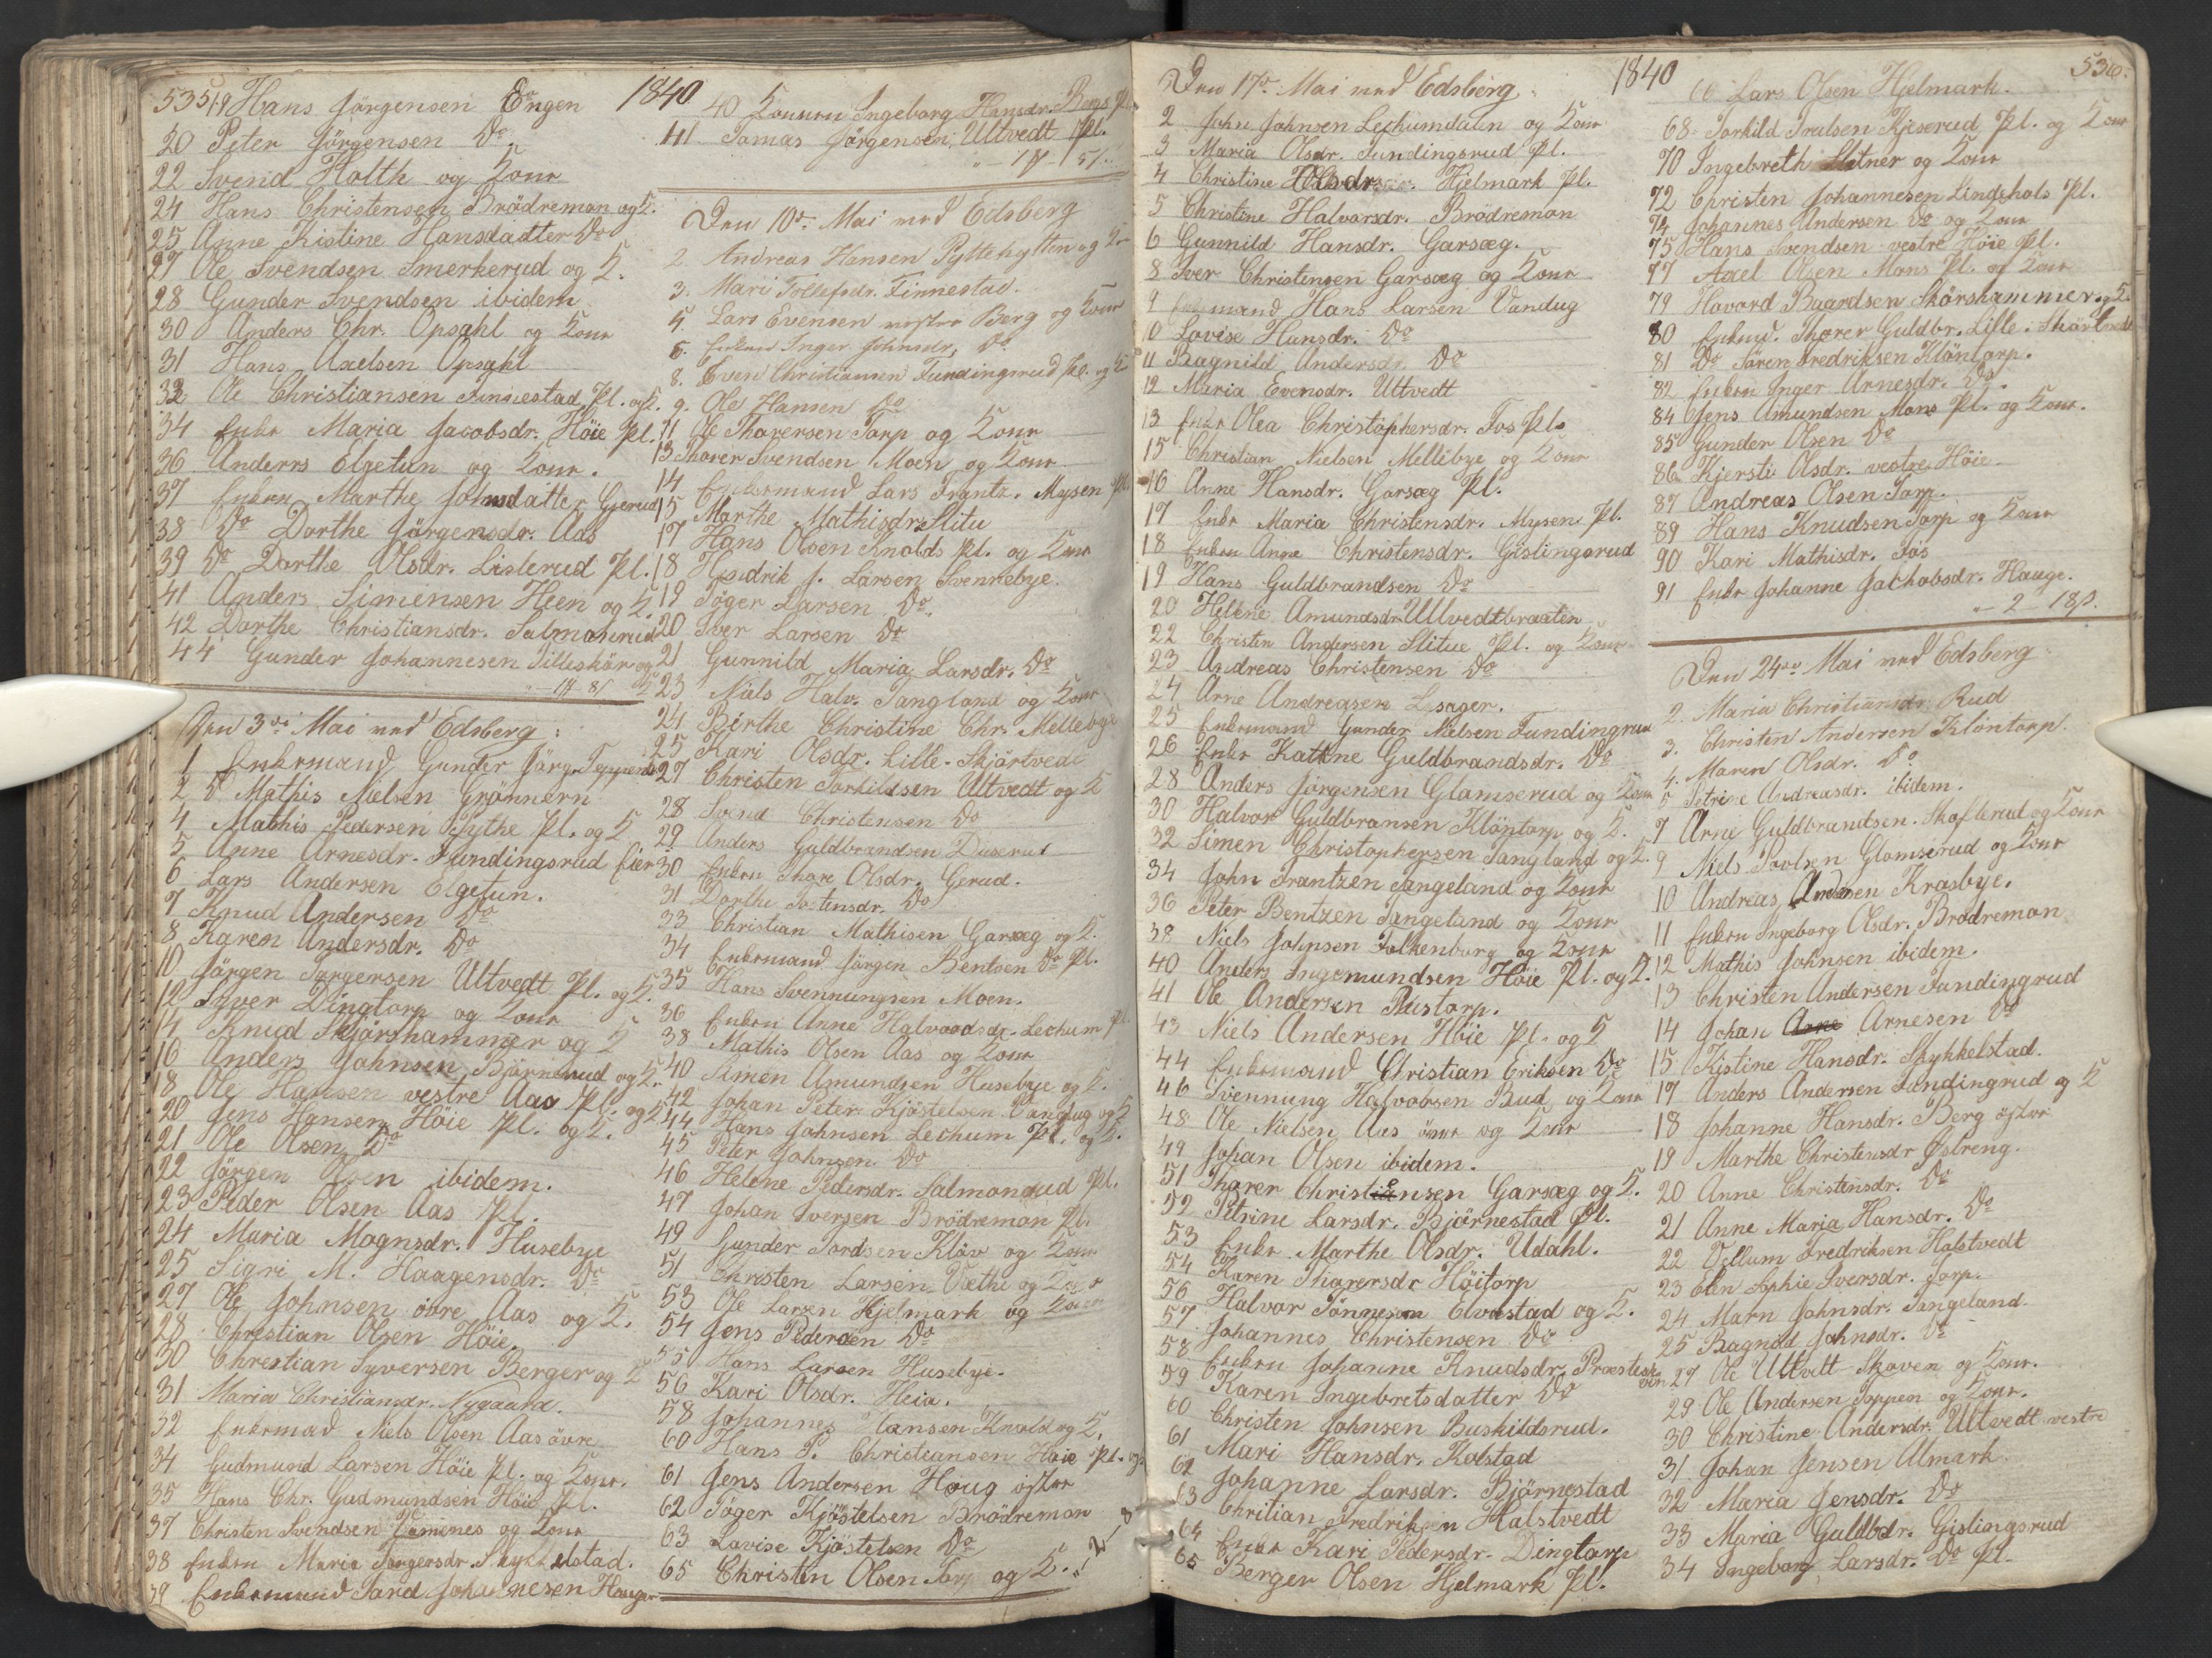 535
1840
19 Hans Jörgensen Engen
20 Peter Jörgensen Do
22 Svend Holth og Kone
24 Hans Christensen Brödremon og K.
25 Anne Kistine Hansdadtter Do
27 Ole Svendsen Smerkerud og K.
28 Gunder Svendsen ibidem
30 Anders Chr. Opsahl og Kone
31 Hans Axelsen Opsahl
32 Ole Christiansen Finnestad Pl. og K.
34 Enke Maria Jacobsdr. Höie Pl.
36 Anders Elgetun og Kone.
37 Enken Marthe Johnsdatter Gjerud
38 Do Dorthe Jörgensdr. Aas
39 Do Dorthe Olsdr. Lislerud Pl.
41 Anders Simensen Heen og K.
42 Dorthe Christiansdr. Salmonrud
44 Gunder Johannesen Tilleskör og K
Den 3die Mai ved Edsberg:
1 Enkemand Gunder Jörg. Toppen
2 D Mathis Nielsen Grönnern
4 Mathis Pedersen Pythe Pl. og K
5 Anne Arnesdr. Fundingsrud Eier
6 Lars Andersen Elgetun.
7 Knud Andersen Do
8 Karen Andersdr. Do
10 Jörgen Jörgensen Ultvedt Pl. og K.
12 Syver Dingtorp og Kone
14 Knud Skjörshammer og K
16 Anders Johnsen Björnerud og K.
18 Ole Hansen vestre Aas Pl. og K
20 Jens Hansen Höie Pl. og K.
21 Ole Olsen Do
22 Jörgen Olsen ibidem.
23 Peder Olsen Aas Pl.
24 Maria Mognsdr. Husebye
25 Sigri M. Haagensdr. Do
27 Ole Johnsen övre Aas og K.
28 Christian Olsen Höie.
30 Christian Syversen Berger og K
31 Maria Christiansdr. Nygaard.
32 Enkemad Niels Olsen Aas övre
34 Gudmund Larsen Höie Pl. og Kone.
35 Hans Chr. Gudmundsen Höie Pl.
37 Christen Svendsen og Kone
38 Enken Maria Skykkelstad.
39 Enkemand Johannesen Hauger
40 Konen Ingeborg Hansdr. Berg Pl.
41 Tomas Jörgensen Ultvedt Pl.
Den 10de Mai ved Edsberg
2. Andreas Hansen Pyttehytten og K
3. Mari Tollefsdr. Finnestad.
5. Lars Evensen vestre Berg og Kone
6. Enken Inger Johnsdr. Do
8. Even Christiansen Fundingsrud Pl. og K
9. Ole Hansen Do
11 Ole Thorersen Torp og Kone
13 Thorer Svendsen Moen og Kone
14 Enkemand Lars Frantz. Mysen Pl.
15 Marthe Mathisdr. Slitu
17 Hans Olsen Knolds Pl. og Kone
18 Hendrik J. Larsen Svennebye.
19 Töger Larsen Do.
20 Iver Larsen Do
21 Gunnild Maria Larsdr. Do
23 Niels Halv. Tangland og Kone
24 Birthe Christine Chr. Mellebye
25 Kari Olsdr. Lille-Skjörtvedt
27 Christen Torkildsen Ultvedt og K
28 Svend Christensen Do
29 Anders Guldbrandsen Duserud
30 Enken Thore Olsdr. Gerud.
31 Dorthe Do
33 Christian Mathisen Garsæg og K.
34 Enkemand Jörgen Bentsen Do Pl.
35 Hans Svennungsen Moen.
36 Enken Anne Halvordsdr. Lechum Pl.
38 Mathis Olsen Aas og Kone
40 Simen Amundsen Husebye og K.
42 Johan Peter Kjöstelsen Vandug og K
44 Hans Johnsen Lechum Pl. og K.
45 Peter Johnsen Do
46 Helene Pedersdr. Salmonrud Pl.
47 Johan Iversen Brödremon Pl.
49 Gunder Tordsen Klöv og Kone
51 Christen Larsen Væthe og Kone
53 Ole Larsen Hjelmark og Kone
54 Jens Pedersen Do
55 Hans Larsen Husebye.
56 Kari Olsdr. Heia.
58 Johannes Hansen Knold og K.
60 Hans P. Christiansen Höie Pl. og
61 Jens Andersen Houg östre
62 Töger Kjöstelsen Brödremon
63 Lovise Kjöstelsen Do
65 Christen Olsen Torp og K.
1840
536.
Den 17de Mai ved Edsberg.
2 John Johnsen Lechumdalen og Kone
3 Maria Olsdr. Fundingsrud Pl.
4 Christine Olsdr. Hjelmark Pl.
5 Christine Halvorsdr. Brödremon
6 Gunnild Hansdr. Garsæg.
8 Iver Christensen Garsæg og Kone
9 Enkemand Hans Larsen Vandug
10 Lovise Hansdr. Do
11 Ragnild Andersdr. Do
12 Maria Evensdr. Ultvedt
13 Enke Olea Christophersdr. Fos Pl.
15 Christian Nielsen Mellebye og Kone
16 Anne Hansdr. Garsæg Pl.
17 Enke Maria Christensdr. Mysen Pl.
18 Enken Anne Christensdr. Gislingsrud
19 Hans Guldbrandsen Do
20 Helene Amundsdr. Ultvedtbraaten
22 Christen Andersen Slitue Pl. og Kone
23 Andreas Christensen Do
24 Arne Andreasen Lesager.
25 Enkemand Gunder Nielsen Fundingrud
26 Enke Katrine Guldbrandsdr. Do
28 Anders Jörgensen Glomserud og Kone
30 Halvor Guldbransen Klöntorp og K.
32 Simen Christophersen Tangland og K.
34 John Frantzen Tangeland og Kone
36 Peter Bentzen Tangeland og Kone
38 Niels Johnsen Falkenburg og Kone
40 Anders Ingemundsen Höie Pl. og K.
41 Ole Andersen Rustorp.
43 Niels Andersen Höie Pl. og K
44 Enkemand Christian Eriksen Do
46 Svennung Halvorsen Rud og Kone
48 Ole Nielsen Aas övre og Kone
49 Johan Olsen ibidem.
51 Thorer Christiensen Garsæg og K.
52 Petrine Larsdr. Björnestad Pl.
53 Enke Marthe Olsdr. Udahl.
54 Karen Thorersdr Höitorp
56 Halvor Tönnesen Elvestad og K.
57 Johannes Christensen Do
58 Enken Johanne Knudsdr. Præstesk
oven
59 Karen Ingebretsdatter Do
60 Christen Johnsen Buskildsrud.
61 Mari Hansdr. Kolstad
62 Johanne Larsdr. Björnestad
63 Chritian Fredriksen Halstvedt
64 Enke Kari Pedersdr. Dingtorp
65 Berger Olsen Hjelmark Pl.
66 Lars Olsen Hjelmark.
68 Torkild Truelsen Kjeserud Pl. og Kone
70 Ingebreth Slitner og Kone
72 Christen Johannesen Lindehols Pl.
74 Johannes Andersen Do og Kone
75 Hans Svendsen vestre Höie Pl.
77 Axel Olsen Mons Pl. og Kone
79 Havord Baardsen Skörshammer og K.
80 Enkend. Thorer Guldbr. Lille-Skörtvedt
81 Do Sören Fredriksen Klöntorp.
82 Enken Inger Arnesdr. Do.
84 Jens Amundsen Mons Pl. og Kone.
85 Gunder Olsen Do
86 Kjersti Olsdr. vestre Höie
87 Andreas Olsen Torp.
89 Hans Knudsen Torp og Kone
90 Kari Mathisdr. Fos
91 Enke Johanne Jachobsdr. Hauge.
" - 2 - 18 s.
Den 24de Mai ved Edsberg
2. Maria Christiansdr. Rud
3. Christen Andersen Klöntorp.
4. Maren Olsdr. Do
5 Petrine Andreasdr. ibidem.
7 Arne Guldbrandsen. Skofterud og Kone
9 Niels Povlsen Glomserud og Kone
10 Andreas Andersen Krosbye.
11 Enken Ingeborg Olsdr. Brödremon
12 Mathis Johnsen ibidem.
13 Christen Andersen Fundingrud
14 Johan Arne Arnesen Do
15 Kistine Hansdr. Skykkelstad.
17 Anders Andersen Fundingrud og K
18 Johanne Hansdr. Berg östre
19 Marthe Christensdr Östreng.
20 Anne Christensdr. Do
21 Anne Maria Hansdr. Do
22 Vellum Fredriksen Halstvedt
23 Elen Sophie Iversdr. Torp.
24 Marn Johnsdr. Tangeland.
25 Ragnild Johnsdr. Do
27 Ole Ultvett Skoven og Kone.
29 Ole Andersen Toppen og Kone.
30 Christine Andersdr. Ultvedt vestre
31 Johan Jensen Ulmark
32 Maria Jensdr. Do
33 Maria Guldbdr. Gislingsrud
34 Ingeborg Larsdr. Do Pl.